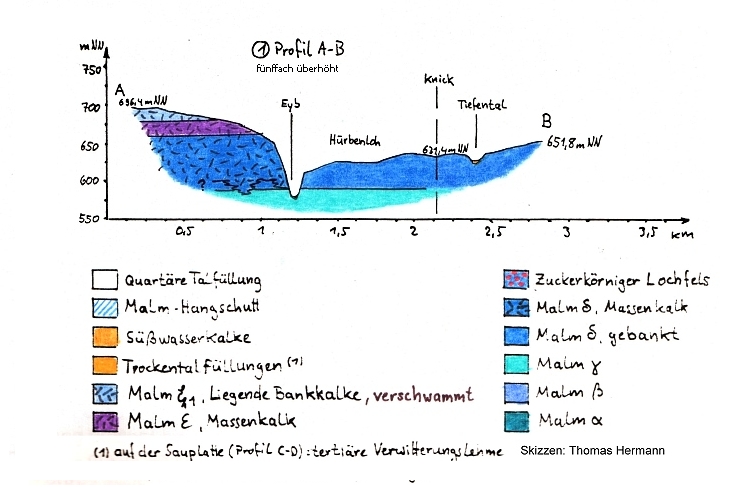 ① Profil A-B
fünffach überhöht
mNN
750
700
650
600
550
A
696,4mNN
Eyb
Hürbenloh
Knick
Tiefental
621,4mNN
B
651,8mNN
?
0,5 1 1,5 2 2,5 3 3,5 km
Quartäre Talfüllung
Malm-Hangschutt
Süßwasserkalke
Trockentalfüllungen (1)
Malm ξ1, Liegende Bankkalke, verschwammt
Malm ε, Massenkalk
Zuckerkörniger Lochfels
Malm δ, Massenkalk
Malm δ, gebankt
Malm γ
Malm β
Malm α
(1) auf der Sauplatte (Profil C-D): tertiäre Verwitterungslehme
Skizzen: Thomas Hermann